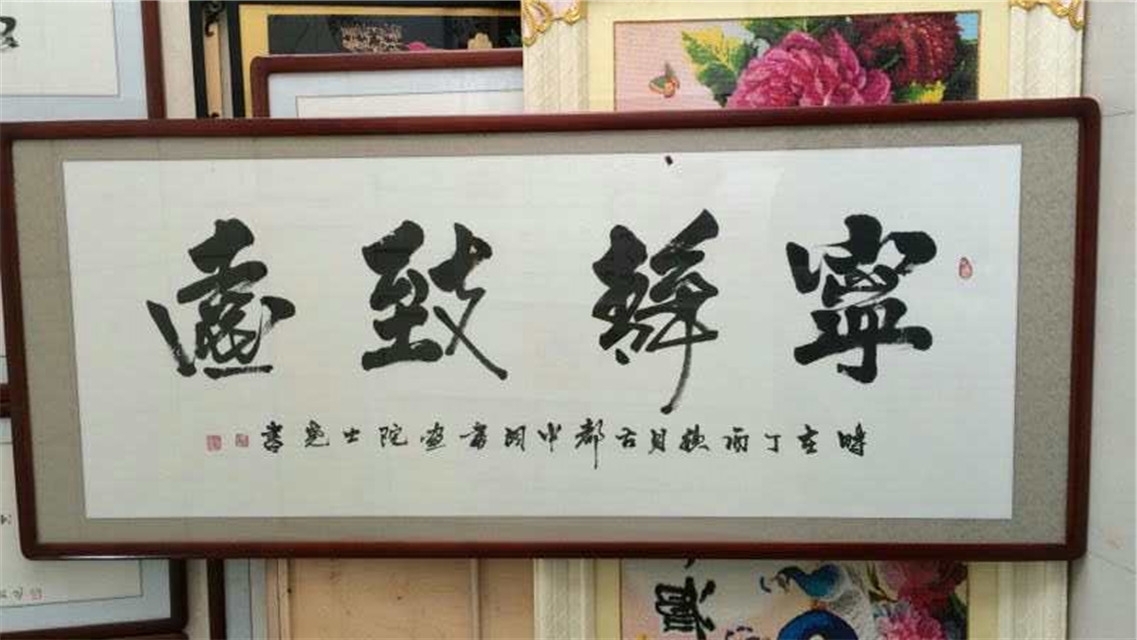 寧靜致遠
時在丁酉秋月古都中國書畫院士堯書